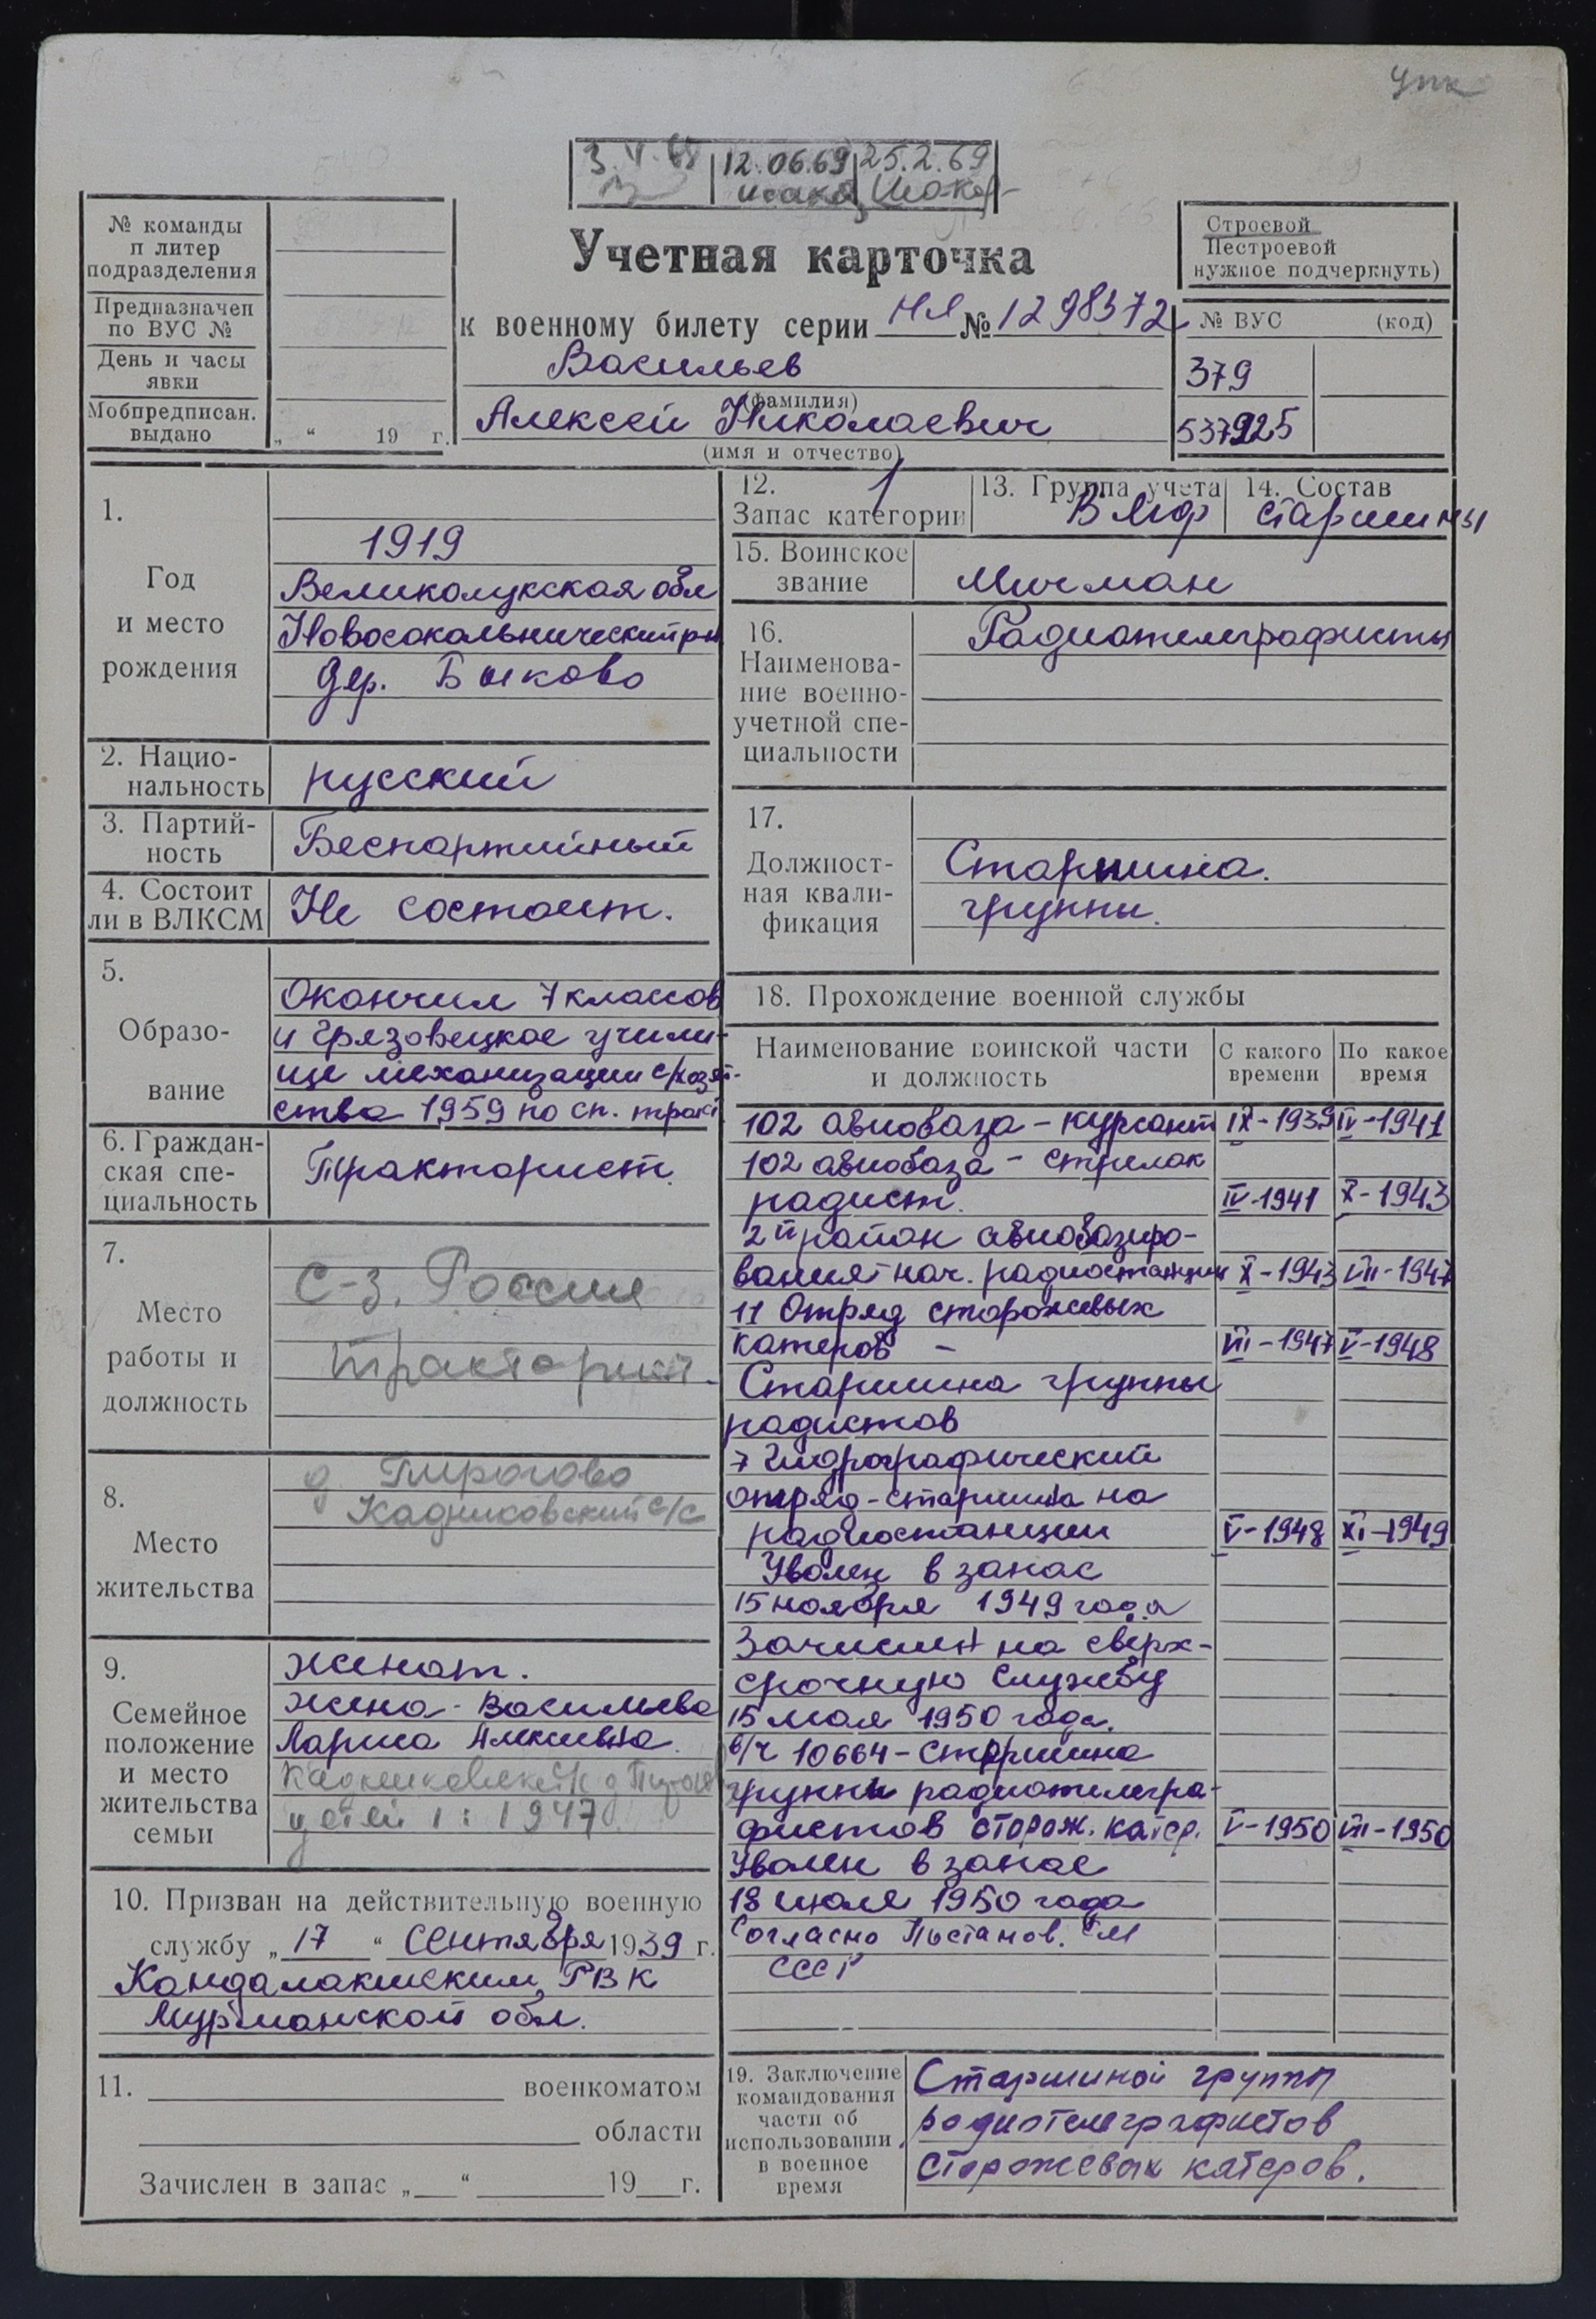 упк
12.06.69 25.2.69
№ команды
и литер
подразделения
Предназначен
по ВУС №
День и часы
явки
Мобпредписан.
выдано
„ “ 19 г.
Учетная карточка
к военному билету серии НЯ № 1298372
Васильев
(фамилия)
Алексей Николаевич
(имя и отчество)
Строевой
Нестроевой
нужное подчеркнуть)
№ ВУС (код)
379
537925
1.
Год
и место
рождения
1919
Великолукская обл
Новосокольнический р-н
дер. Быково
2. Нацио-
нальность
русский
3. Партий-
ность
Беспартийный
4. Состоит
ли в ВЛКСМ
Не состоит.
5.
Образо-
вание
Окончил 7 классов
и Грязовецкое учили-
ще механизации с/хозяй-
ства 1959 по сп. тракт
6. Граждан-
ская спе-
циальность
Тракторист.
7.
Место
работы и
должность
С-з. Россия
тракторист.
8.
Место
жительства
д. Пирогово
Кадниковский с/с
9.
Семейное
положение
и место
жительства
семьи
Женат.
жена - Васильева
Лариса Алексеевна.
Кадниковский с/с д.
детей 1: 1947
10. Призван на действительную военную
службу „ 17 “ Сентября 1939 г.
Кандалакшским РВК
Мурманской обл.
11. военкоматом
области
Зачислен в запас „ “ 19 г.
12.
Запас категории 1
13. Группа учета
ВМФ
14. Состав
старшины
15. Воинское
звание
Мичман
16.
Наименова-
ние военно-
учетной спе-
циальности
Радиотелеграфисты
17.
Должност-
ная квали-
фикация
Старшина.
группы.
18. Прохождение военной службы
Наименование воинской части
и должность
С какого
времени
По какое
время
102 авиобаза - курсант IX-1939 IV-1941
102 авиобаза - стрелок
радист. IV-1941 X-1943
2й район авиобазиро-
вания - нач. радиостанции X-1943 VII-1947
11 Отряд сторожевых
катеров - VII-1947 V-1948
Старшина группы
радистов
7 Гидрографический
отряд - старшина на
радиостанции V-1948 XI-1949
Уволен в запас
15 ноября 1949 года
Зачислен на сверх-
срочную службу
15 мая 1950 года.
в/ч 10664 - Старшина
группы радиотелегра-
фистов сторож. катер. V-1950 VII-1950
Уволен в запас
18 июля 1950 года
Согласно Постанов. СМ
СССР
19. Заключение
командования
части об
использовании
в военное
время
Старшиной группы
радиотелеграфистов
сторожевых катеров.